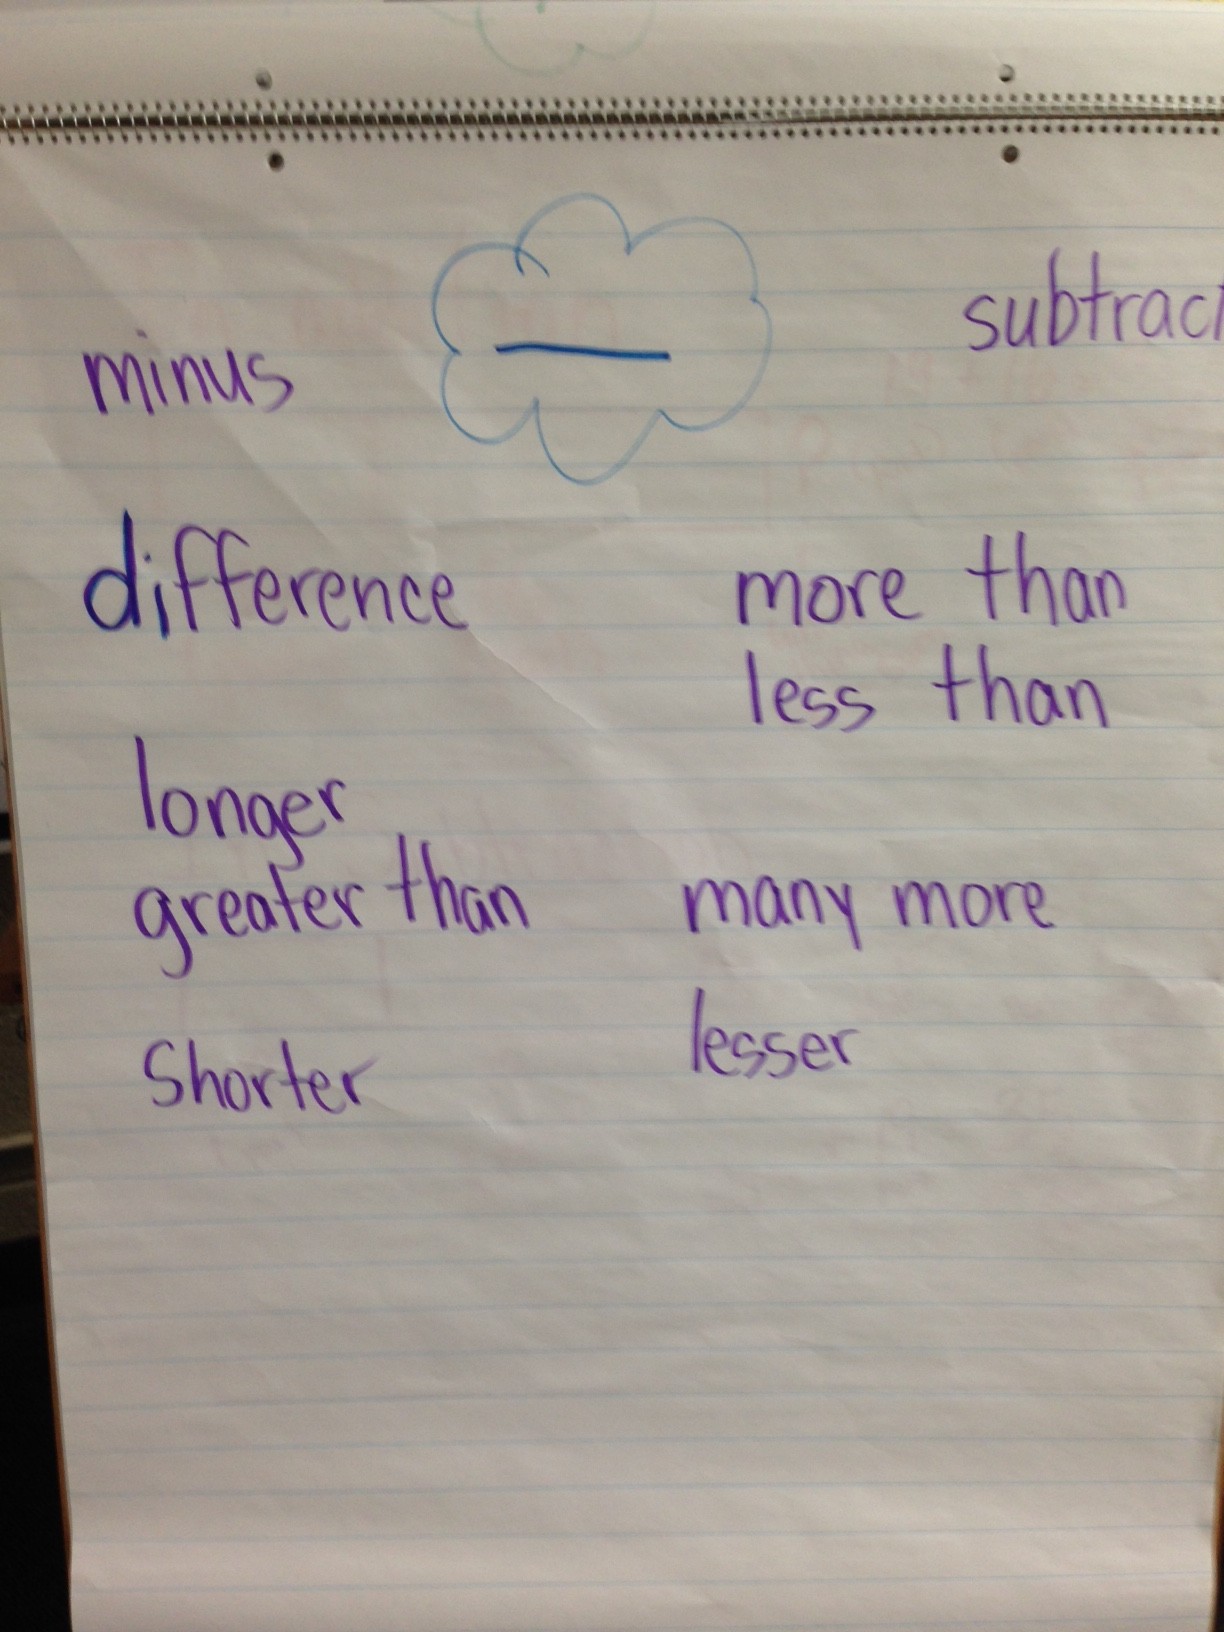 minus
—
subtract
difference
more than
less than
longer
greater than
many more
Shorter
lesser